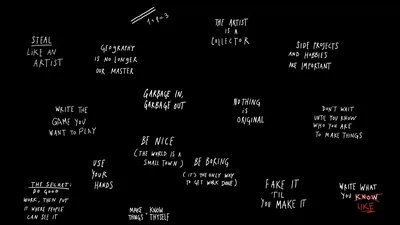 1+1=3
THE ARTIST
IS A
COLLECTOR
STEAL
LIKE AN
ARTIST
GEOGRAPHY
IS NO LONGER
OUR MASTER
SIDE PROJECTS
AND HOBBIES
ARE IMPORTANT
GARBAGE IN,
GARBAGE OUT
WRITE THE
GAME YOU
WANT TO PLAY
NOTHING
IS
ORIGINAL
DON'T WAIT
UNTIL YOU KNOW
WHO YOU ARE
TO MAKE THINGS
BE NICE
(THE WORLD IS A
SMALL TOWN)
USE
YOUR
HANDS
BE BORING
(IT'S THE ONLY WAY
TO GET WORK DONE)
THE SECRET:
DO GOOD
WORK, THEN PUT
IT WHERE PEOPLE
CAN SEE IT
MAKE KNOW
THINGS THYSELF
FAKE IT
'TIL
YOU MAKE IT
WRITE WHAT
YOU KNOW
LIKE